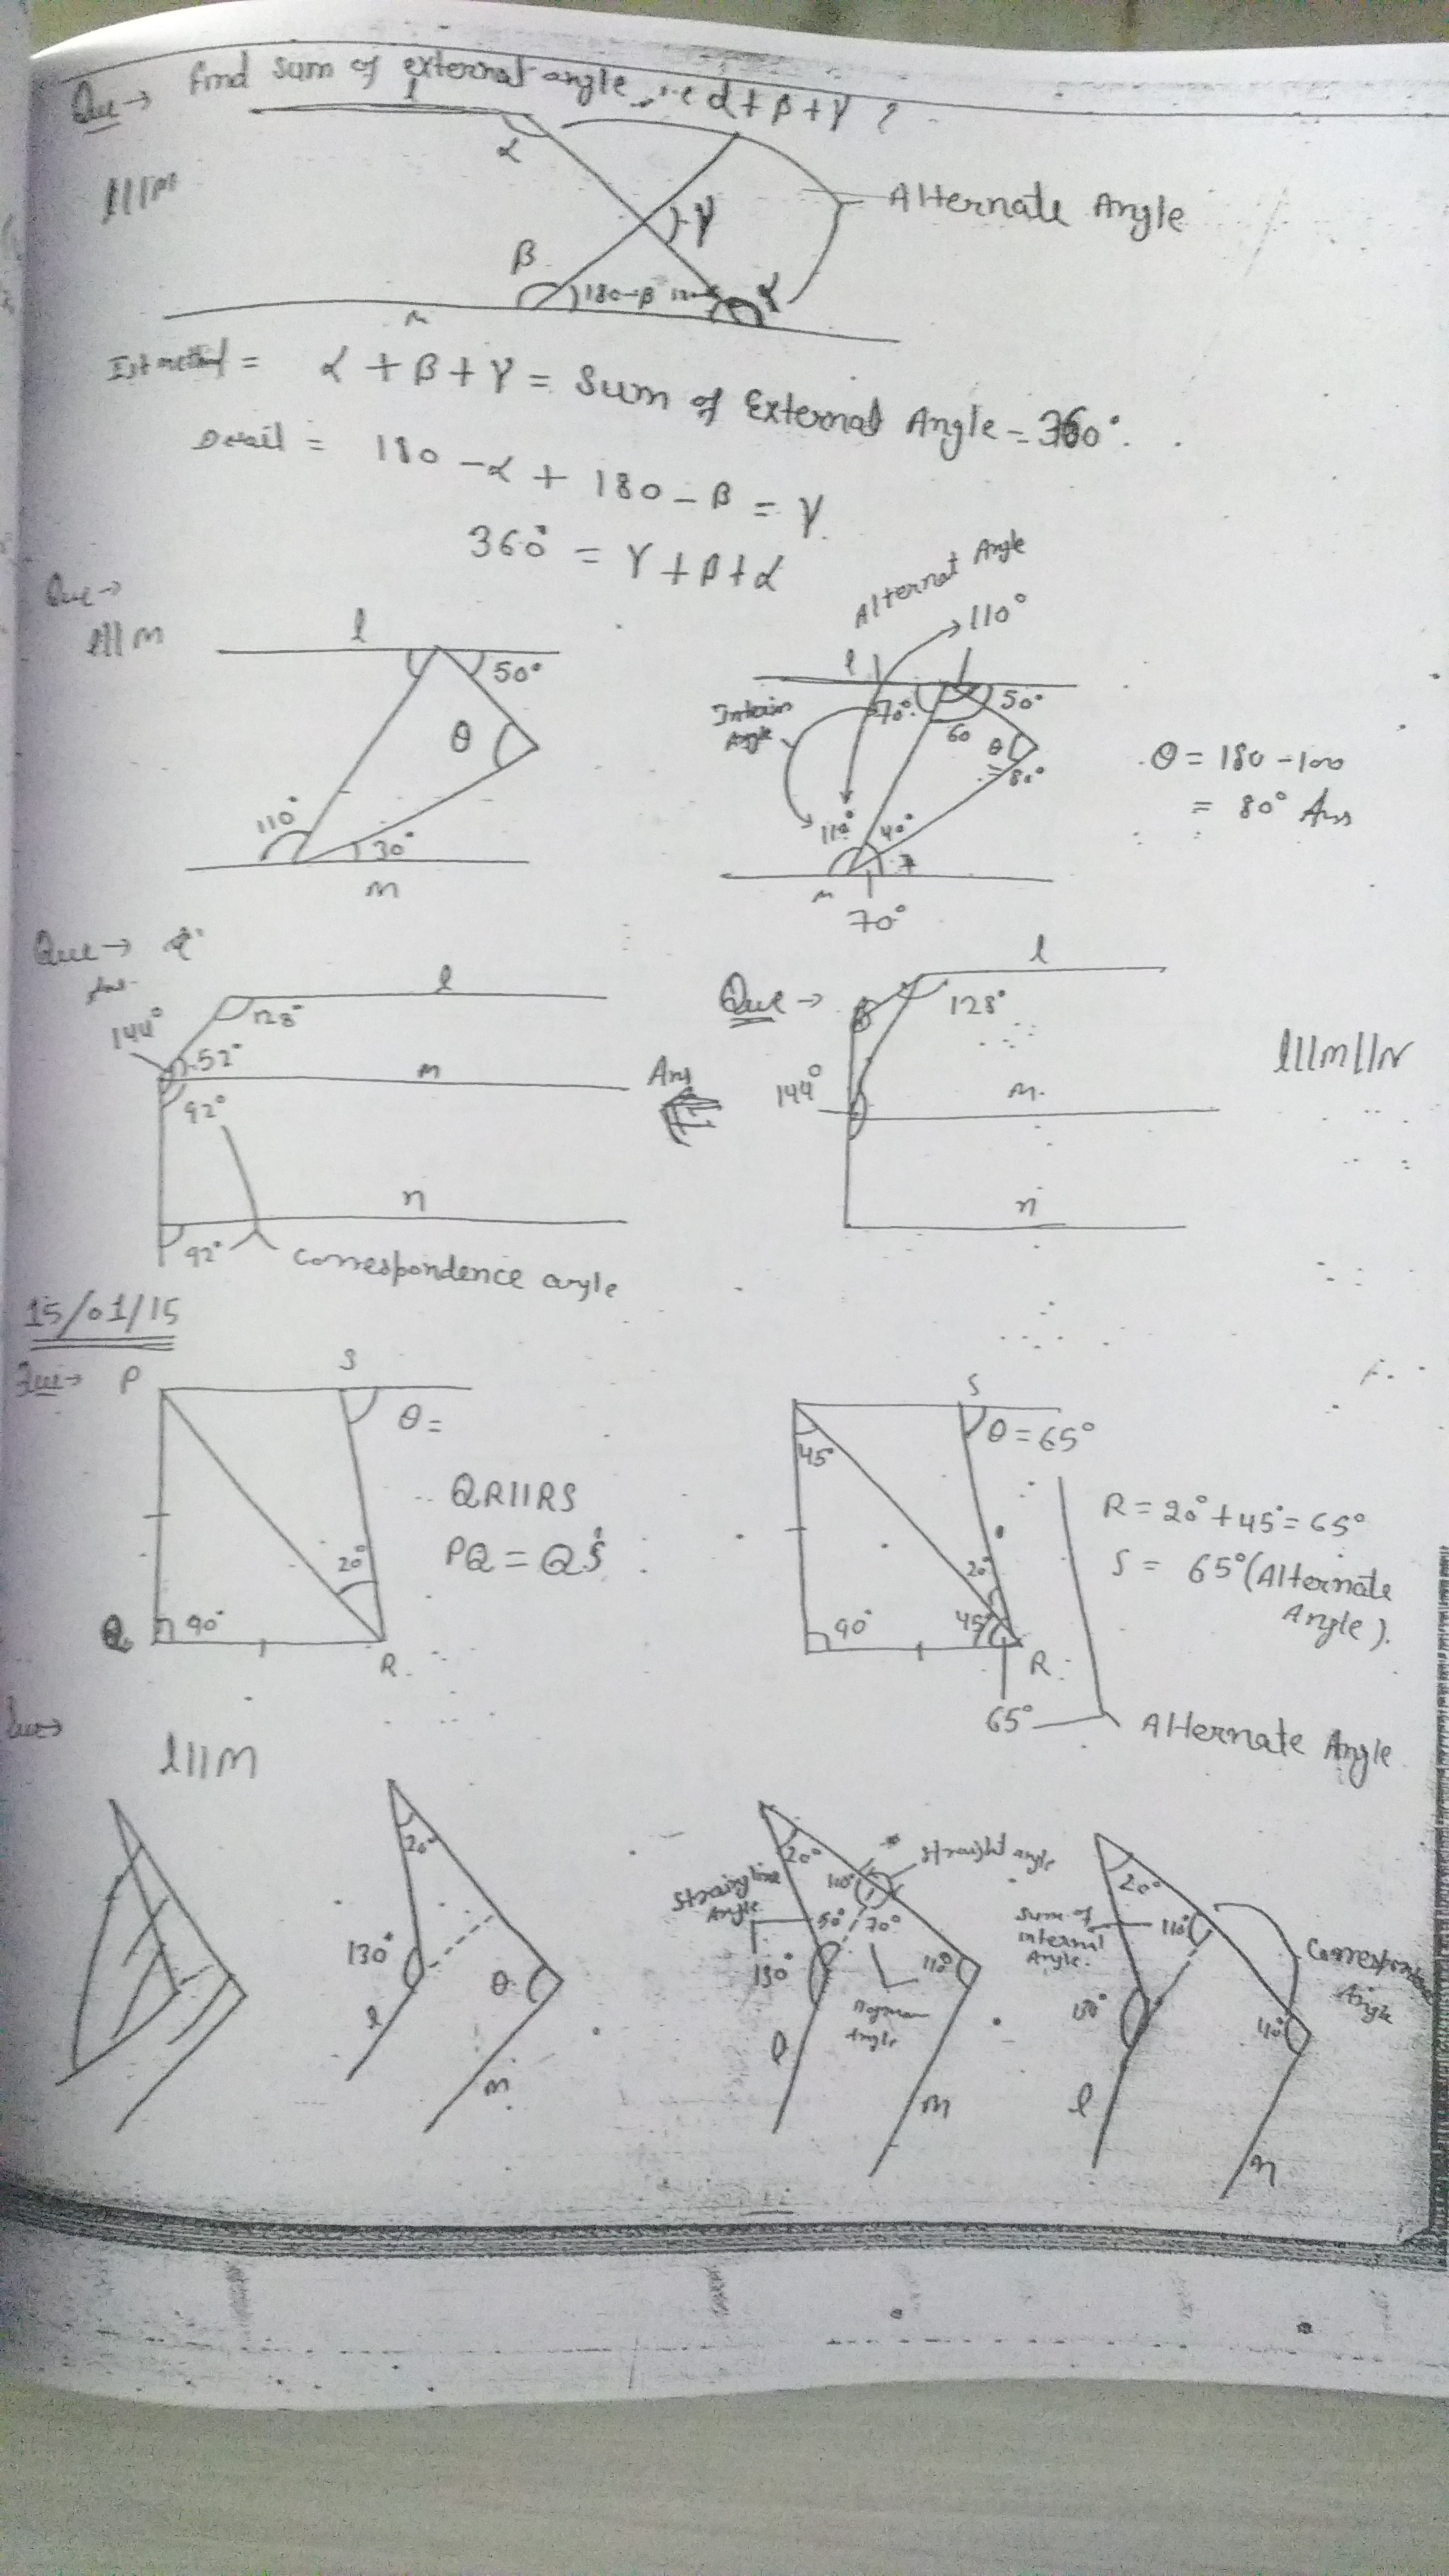 Que → find sum of external angle, i.e α + β + γ ?
l
α
l||m
γ
Alternate Angle
β
180-β
α
m
Ist method = α + β + γ = Sum of External Angle = 360°.
180 - α + 180 - β = γ
360° = γ + β + α
Que →
l||m
l
50°
θ
110°
30°
m
Alternat Angle
110°
l
70°
50°
60
θ
= 80°
Angle
110°
40°
m
70°
θ = 180 - 100
= 80° Ans
Que →
l
144°
128°
52°
m
92°
n
92°
correspondence angle
Ans
Que →
l
128°
144°
m
n
l||m||n
15/01/15
Que →
P
S
θ =
QR||RS
PQ = QS
20°
Q
90°
R
S
45°
θ = 65°
20°
90°
45°
R
65°
R = 20° + 45° = 65°
S = 65° (Alternate
Angle).
Alternate Angle
Que →
l||m
20°
130°
θ
l
m
20°
straight angle
110°
Angle
50°
70°
130°
110°
Angle
l
m
20°
sum of
internal
Angle.
110°
Angle
l